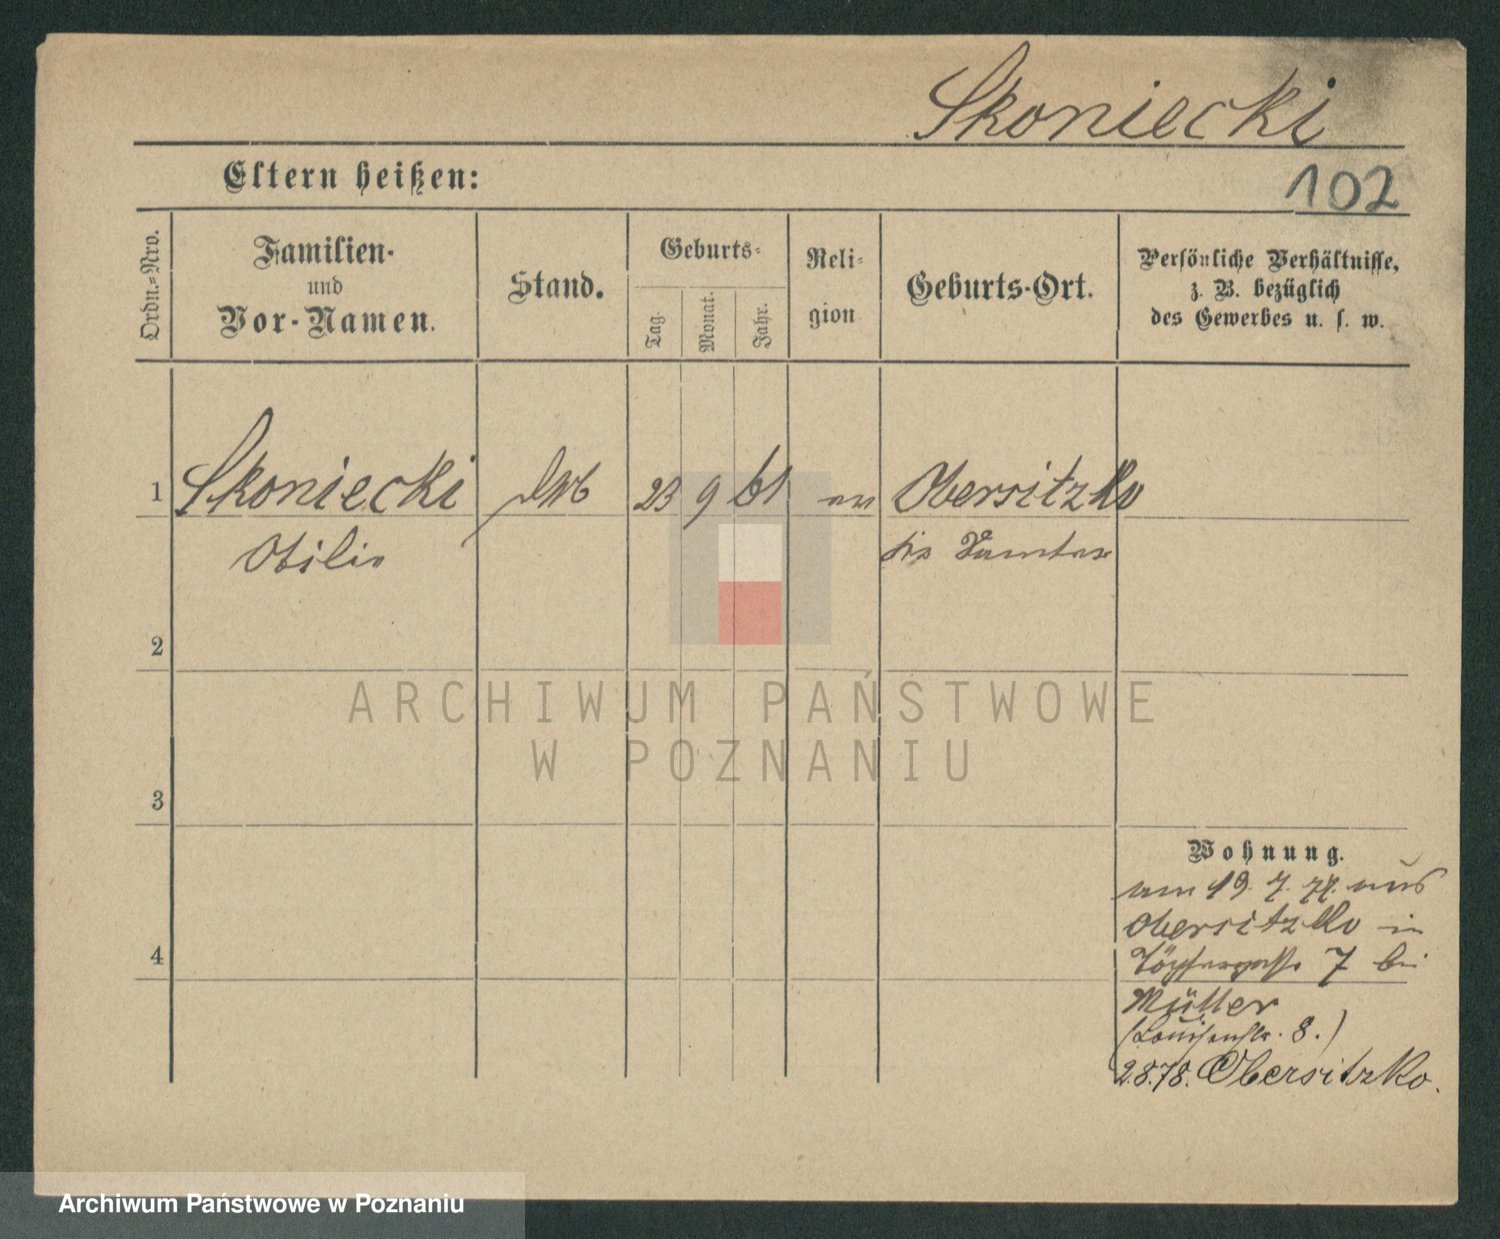 Skoniecki
Eltern heißen:
102
Ordn.-Nro.
Familien-
und
Vor-Namen.
Stand.
Geburts-
Tag.
Monat.
Jahr.
Reli-
gion
Geburts-Ort.
Persönliche Verhältnisse,
z. B. bezüglich
des Gewerbes u. s. w.
1 Skoniecki 23 9 61 Obersitzko
Otilie
Kr. Samter
2
ARCHIWUM PAŃSTWOWE
W POZNANIU
3
Wohnung.
am 19. 7. 77. aus
Obersitzko in
4
Töpfergasse 7 bei
Müller
(Louisenstr. 8.)
2.8.78. Obersitzko.
Archiwum Państwowe w Poznaniu